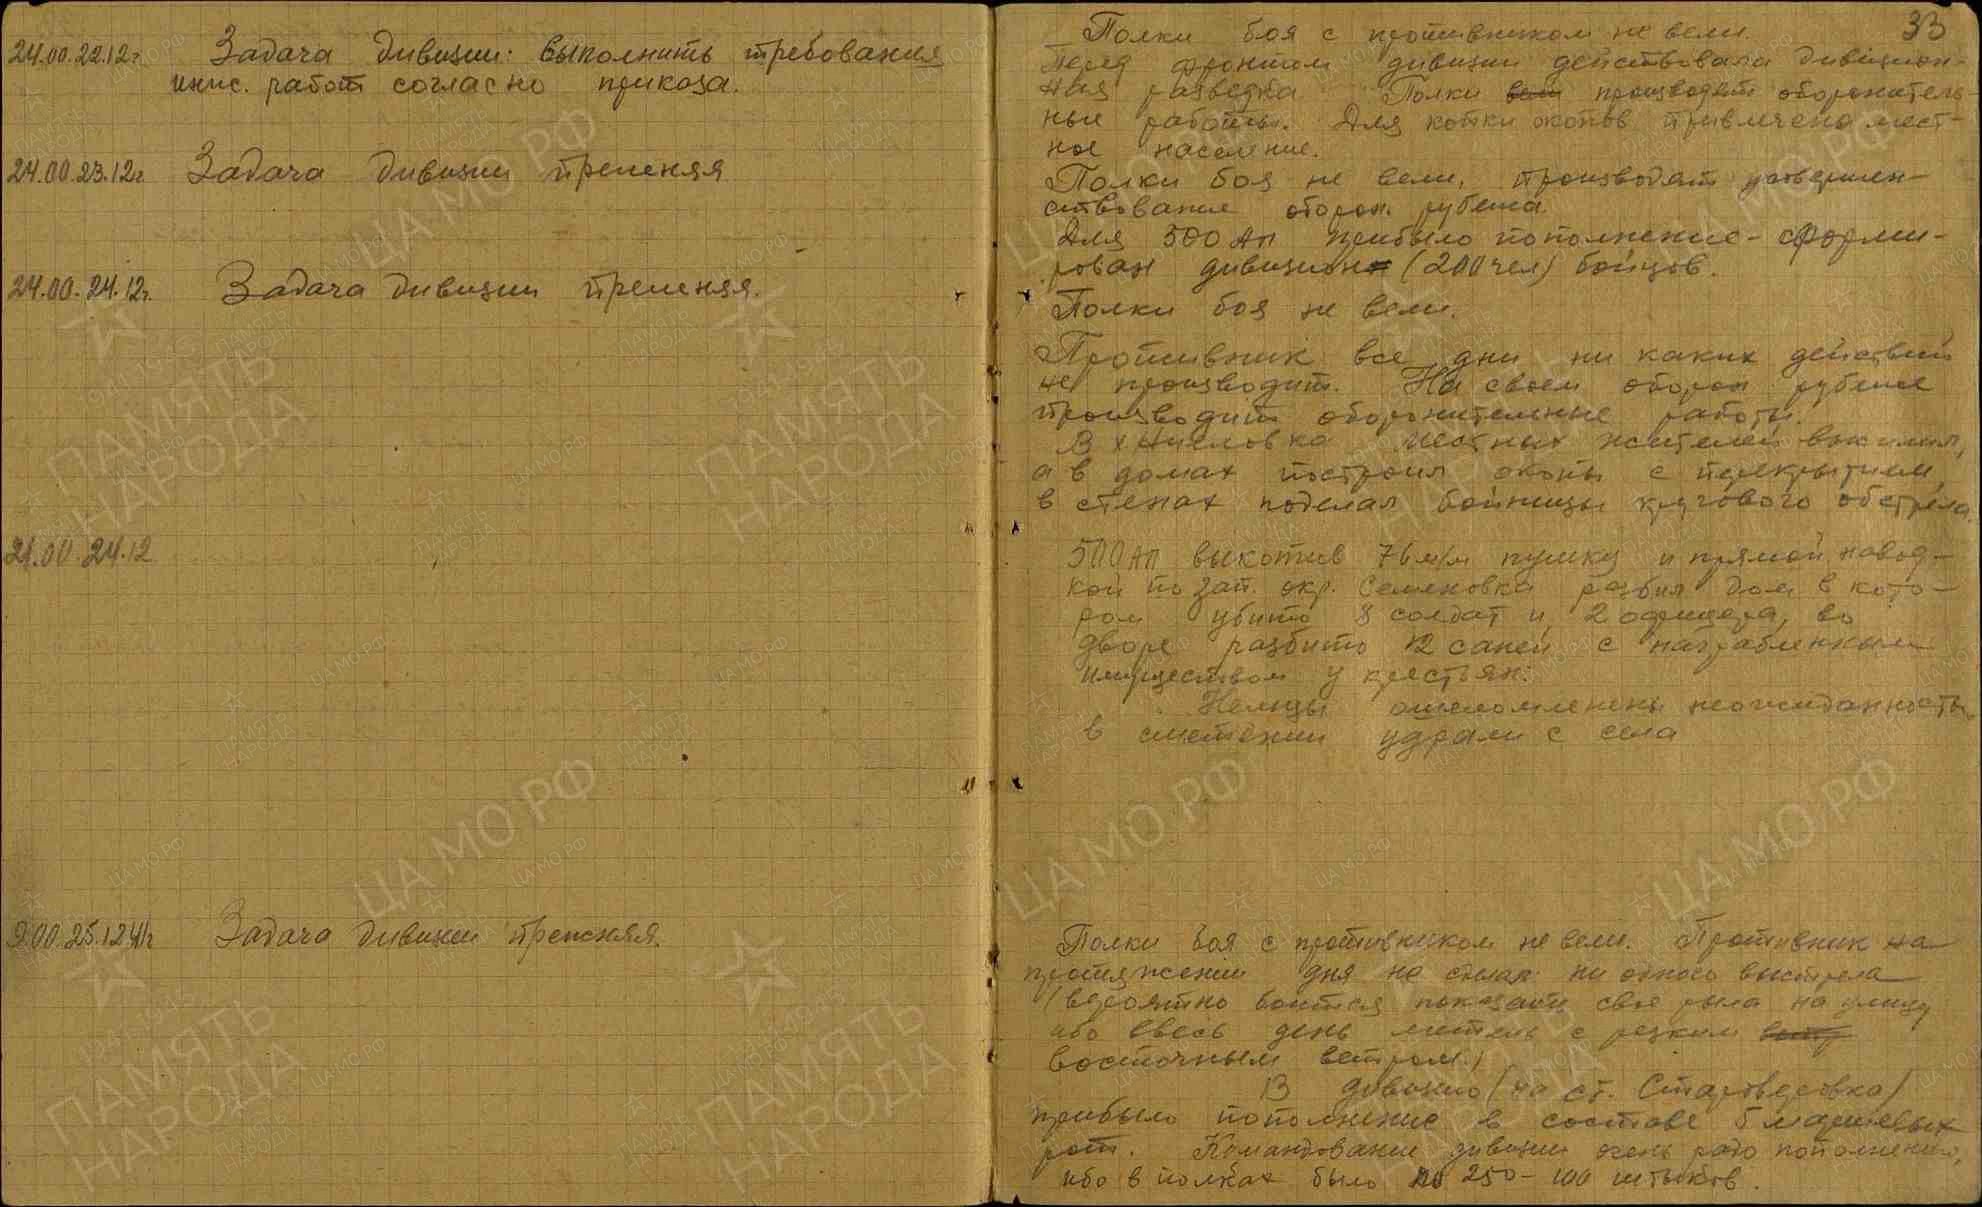 24.00.22.12г. Задача дивизии: выполнить требования
инж. работ согласно приказа.
24.00.23.12г. Задача дивизии прежняя
24.00.24.12г. Задача дивизии прежняя.
21.00 24.12
9.00.25.12.41г Задача дивизии прежняя.
33
Полки боя с противником не вели.
Перед фронтом дивизии действовала дивизион-
ная разведка Полки вели производят оборонитель-
ные работы. Для копки окопов привлечено мест-
ное население.
Полки боя не вели, производят усовершен-
ствование оборон. рубежа.
Для 500 Ап прибыло пополнение - сформи-
рован дивизион (200 чел) бойцов.
Полки боя не вели.
Противник все дни ни каких действий
не производит. На своем оборон рубеже
производит оборонительные работы.
В х. местных жителей выжил,
а в домах построил окопы с перекрытием,
в стенах поделал бойницы кругового обстрела.
500 АП выкотив 76 м/м пушку и прямой навод-
кой по зап. окр. Семеновка разбил дом в кото-
ром убито 8 солдат и 2 офицера, во
дворе разбито 12 саней с награбленным
имуществом у крестьян.
Немцы ошеломленены неожиданность
в смятении удрали с села
Полки боя с противником не вели. Противник на
протяжении дня не сделал ни одного выстрела
(вероятно боится показать свое рыла на улицу
ибо весь день метель с резким
восточным ветром.)
В дивизию (на ст. Староверовка)
прибыло пополнение в составе 6 маршевых
рот. Командование дивизии очень радо пополнению,
ибо в полках было по 250-100 штыков.
ЦА МО РФ
ПАМЯТЬ
НАРОДА
1941-1945